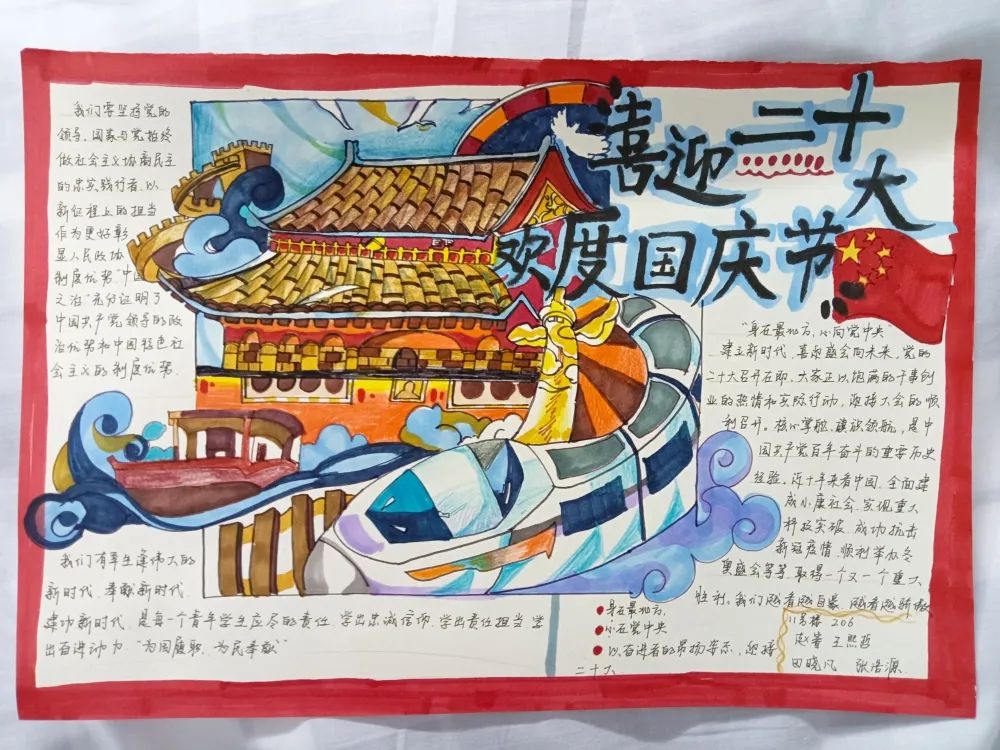 喜迎二十大
欢度国庆节
我们要坚持党的
领导，国家与党始终
做社会主义协商民主
的忠实践行者，以
新征程上的担当
作为更好彰
显人民政协
制度优势。"中国
之治"充分证明了
中国共产党领导的政
治优势和中国特色社
会主义的制度优势。
"身在最北方，心向党中央
建立新时代，喜迎盛会向未来，党的
二十大召开在即，大家正以饱满的干事创
业的热情和实际行动，迎接大会的顺
利召开。核心掌舵，旗帜领航，是中
国共产党百年奋斗的重要历史
经验，近十年来看中国，全面建
成小康社会，实现重大
科技突破，成功抗击
新冠疫情，顺利举办冬
奥盛会等等，取得一个又一个重大
胜利，我们越看越自豪，越看越骄傲
我们有幸生逢伟大的
新时代，奉献新时代
建功新时代，是每一个青年学生应尽的责任，学出忠诚信仰，学出责任担当，学
出奋进动力，"为国履职，为民奉献"
身在最北方，
心在党中央
以奋进者的昂扬姿态，迎接
二十大
11号楼 206
赵睿 王熙哲
田晓凡 张浩源